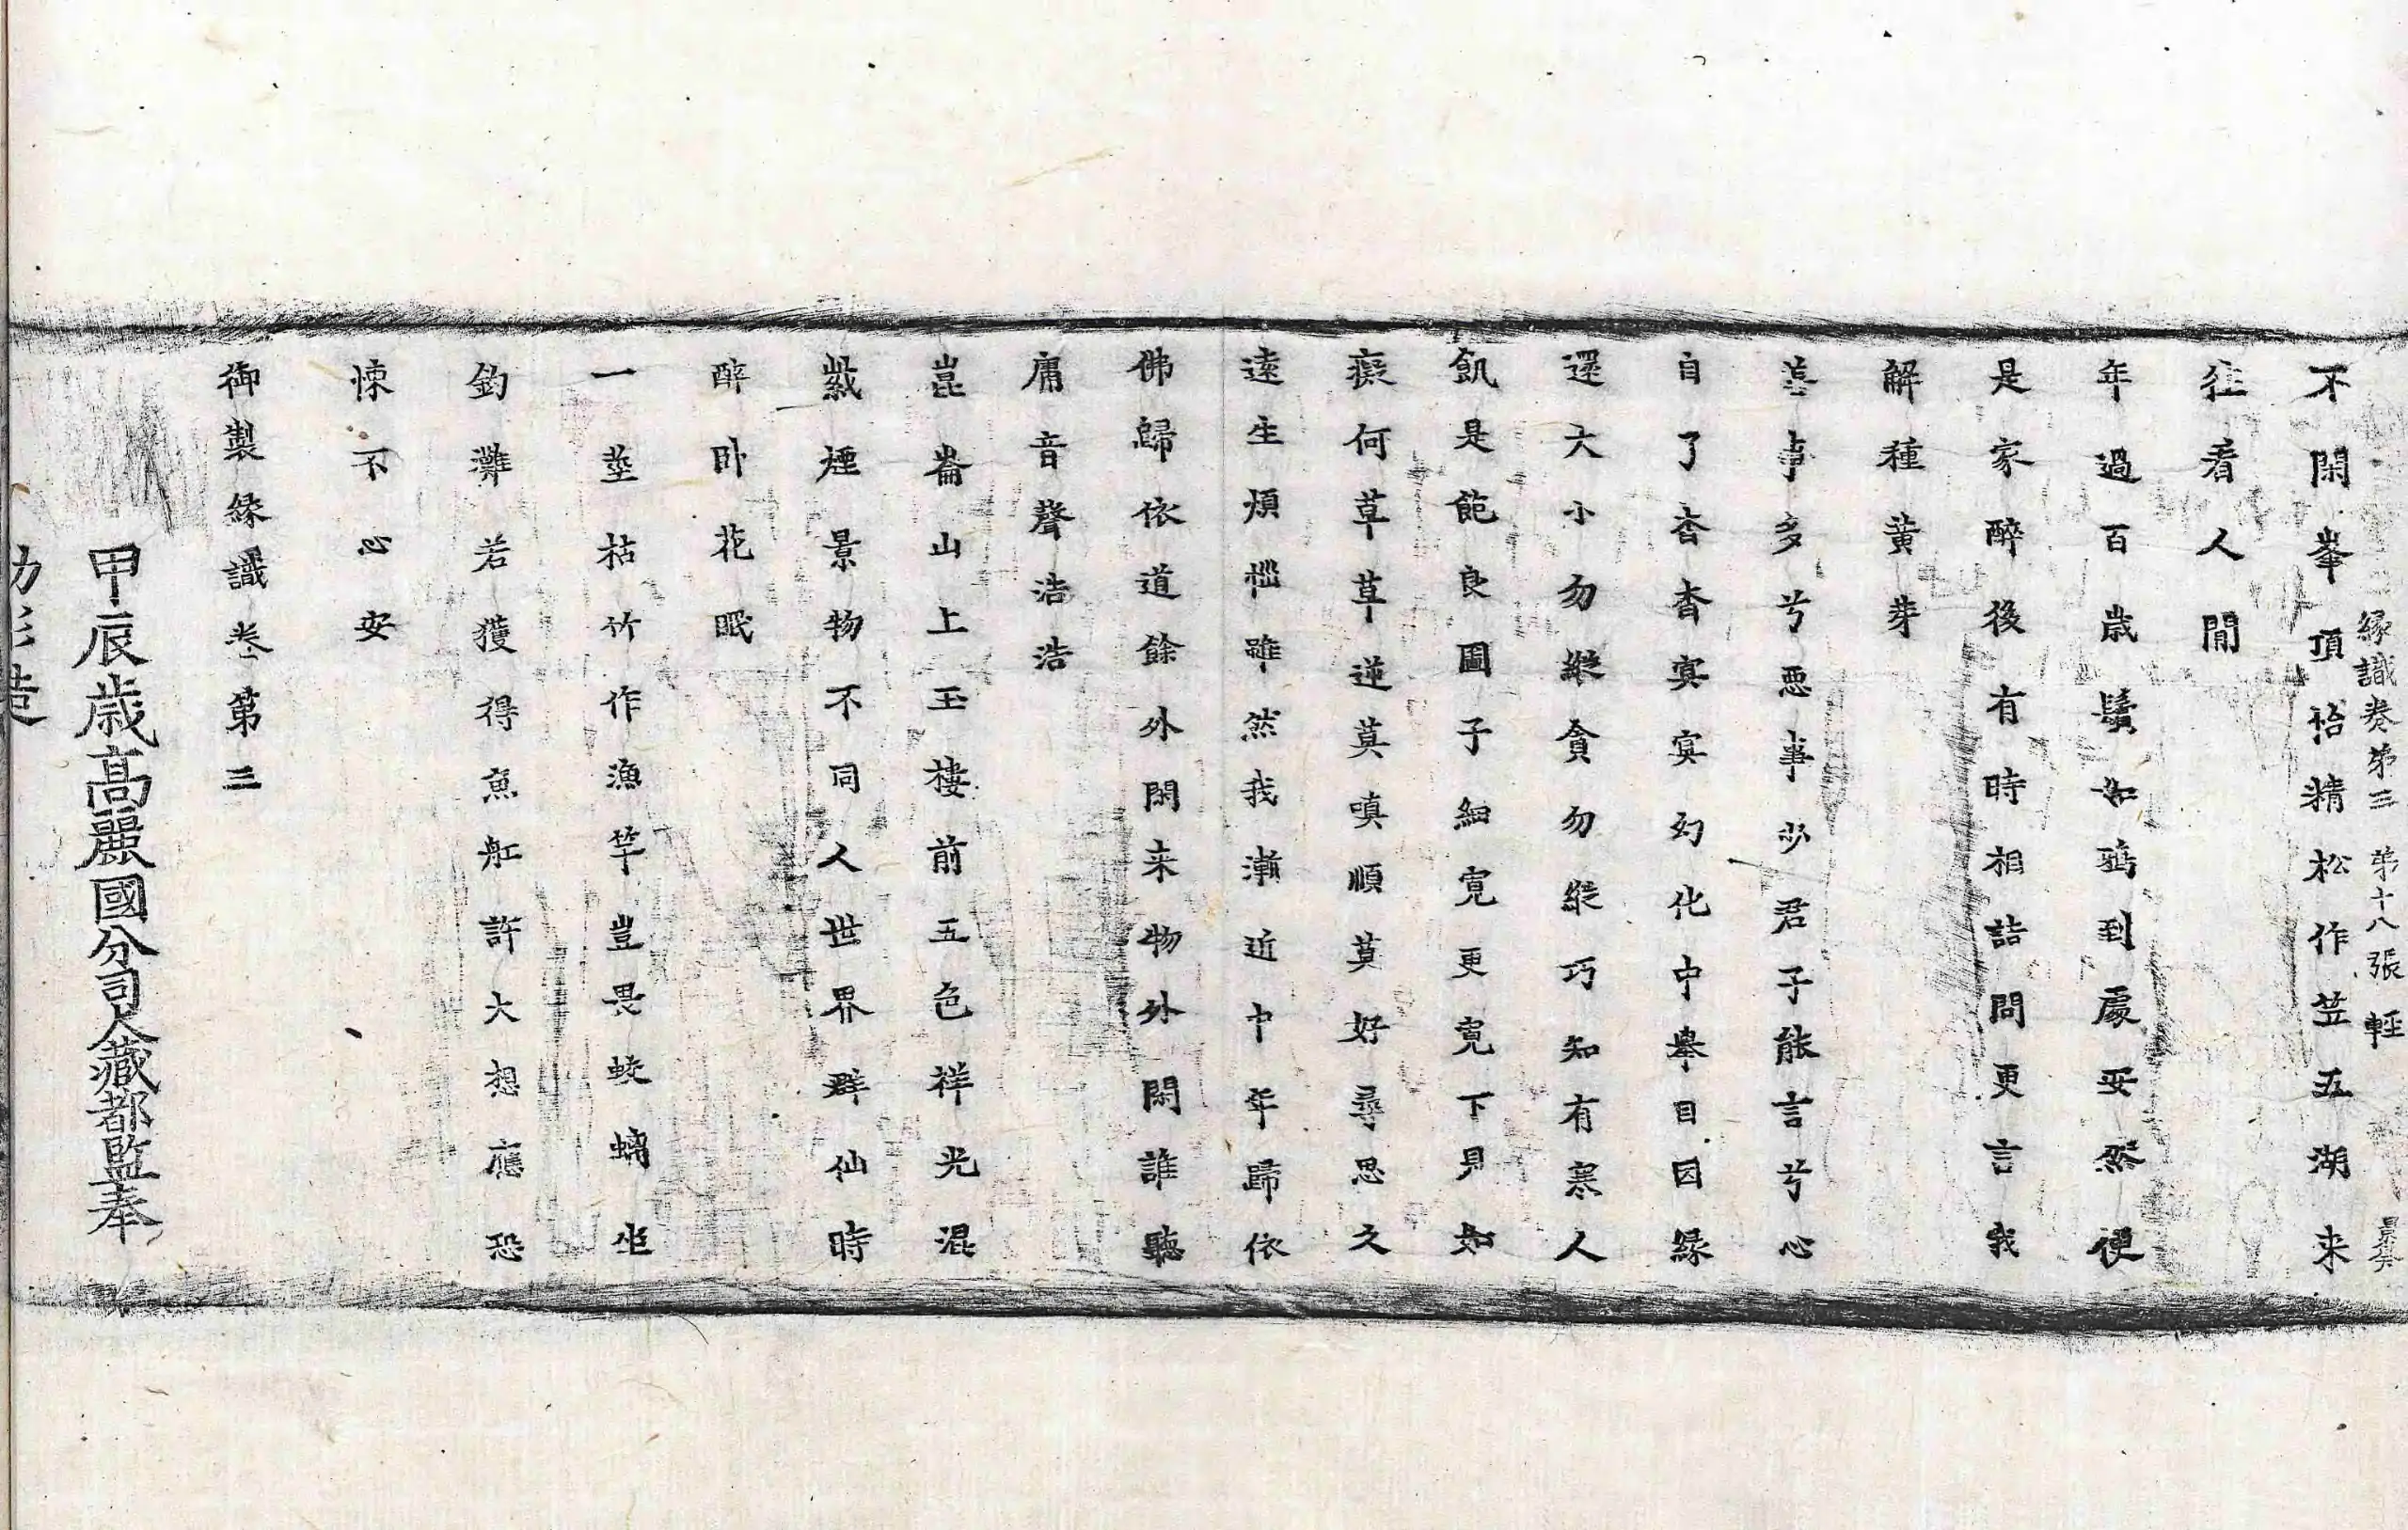 緣識卷第三 第十八張 輕
不閑峯頂恰精松作笠五湖来
往看人間
年過百歳鬚如鵶到處妥然便
是家醉後有時相詰問更言我
解種黄芽
善事多兮悪事少君子能言兮心
自了杳杳寞寞幻化中舉目因緣
還大小勿縱貪勿縱巧知有寒人
飢是飽良圖子細寛更寛下見如
癡何草草逆莫嗔順莫好尋思久
遠生煩惱雖然我漸近中年歸依
佛歸依道餘外閑来物外閑誰聽
庸音聲浩浩
崑崙山上玉樓前五色祥光混
紫煙景物不同人世界群仙時
醉卧花眠
一莖枯竹作漁竿豈畏蛟螭坐
釣灘若獲得魚舡許大想應恐
悚不心安
御製緣識卷第三
甲辰歳高麗國分司大藏都監奉